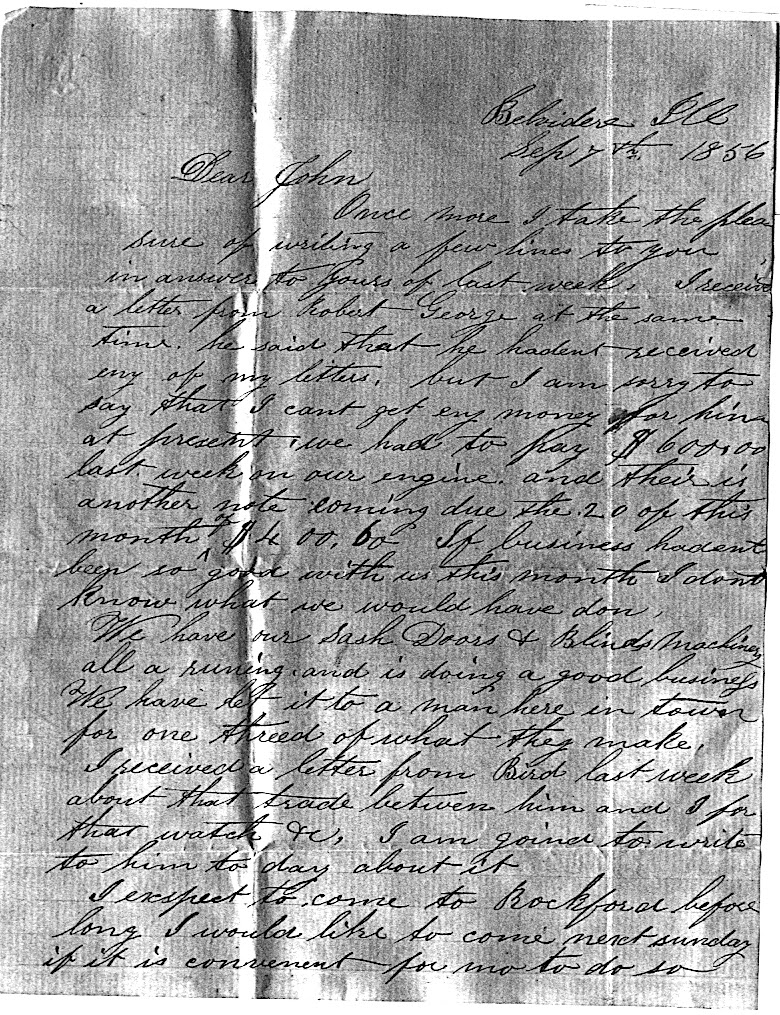 Belvidere Ill
Sep 7th 1856
Dear John
Once more I take the plea
sure of writing a few lines to you
in answer to yours of last week. I receive
a letter from Robert George at the same
time. he said that he hadent received
eny of my letters, but I am sorry to
say that I cant get eny money for him
at present. we had to pay $600.00
last week on our engine. and their is
another note coming due the 20 of this
month of $400.60 If business hadent
been so good with us this month I dont
know what we would have don,
We have our Sash Doors & Blinds Machinery
all a runing and is doing a good business
We have let it to a man here in town
for one threed of what they make.
I received a letter from Bird last week
about that trade betwen him and I for
that watch &c, I am goind to write
to him to day about it
I exspect to come to Rockford before
long I would like to come next sunday
if it is convenent for me to do so